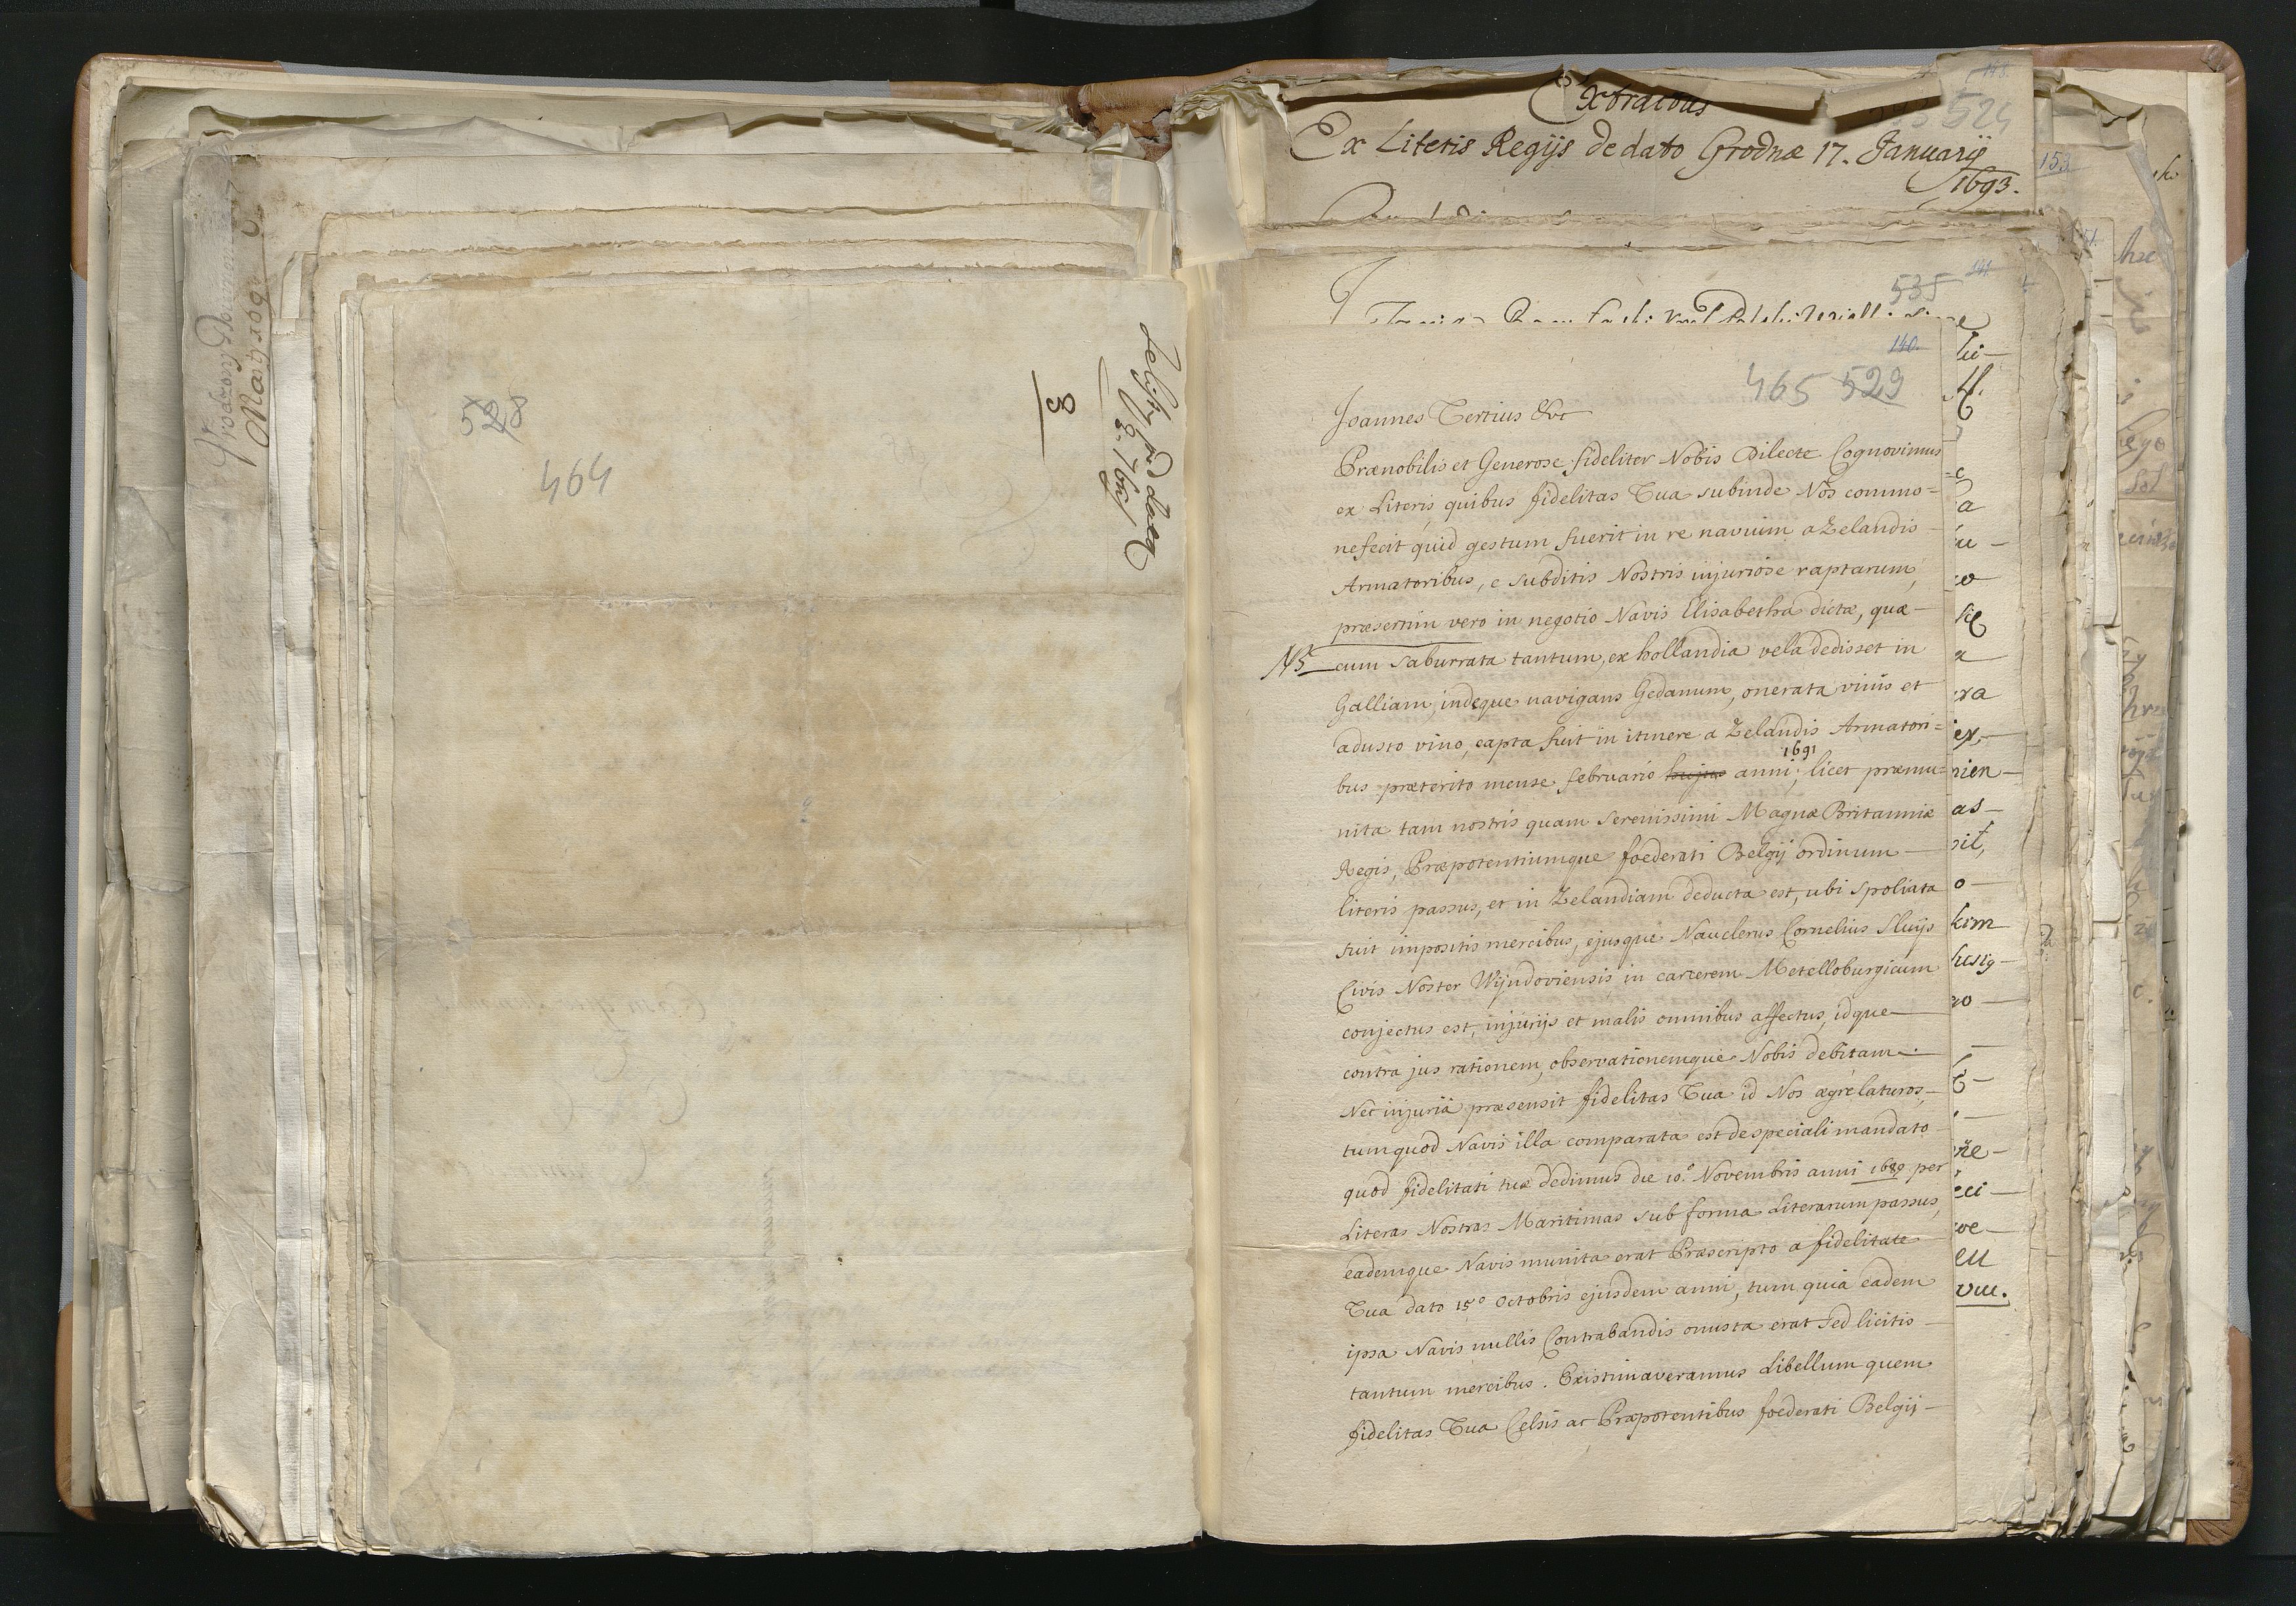 528
464
3
Extractus
Ex Literis Regijs de dato Grodnæ 17. Januarij
1693.
153.
535
140.
465 529
Joannes Tertius &c
Prænobilis et Generose fideliter Nobis Dilecte Cognovimus
ex Literis quibus fidelitas Tua subinde Nos commo=
nefecit quid gestum fuerit in re navium a Zelandis
Armatoribus, e subditis Nostris injuriose raptarum,
præsertim vero in negotio Navis Elisabetha dictæ, quæ
NB cum saburrata tantum, ex hollandia vela dedisset in
Galliam, indeque navigans Gedanum, onerata vinis et
adusto vino, capta fuit in itinere a Zelandis Armatori=
1691
bus præterito mense februario hujus anni; licet præmu=
nita tam nostris quam Serenissimi Magnæ Britanniæ
Regis, Præpotentiumque foederati Belgij ordinum
literis passus, et in Zelandiam deducta est, ubi spoliata
fuit impositis mercibus, ejusque Nauclerus Cornelius Sluijs
Civis Noster Wijndoviensis in carcerem Metelloburgicum
conjectus est, injurijs et malis omnibus affectus, idque
contra jus rationem, observationemque Nobis debitam.
Nec injuriâ præsensit fidelitas Tua id Nos ægre laturos,
tum quod Navis illa comparata est de speciali mandato
quod fidelitati tuæ dedimus die 10.° Novembris anni 1689 per
Literas Nostras Maritimas sub forma Literarum passus,
eademque Navis munita erat Præscripto a fidelitate
Tua dato 15° Octobris ejusdem anni, tum quia eadem
ipsa Navis nullis Contrabandis onusta erat sed licitis
tantum mercibus. Existimaveramus Libellum quem
fidelitas Tua Celsis ac Præpotentibus foederati Belgij